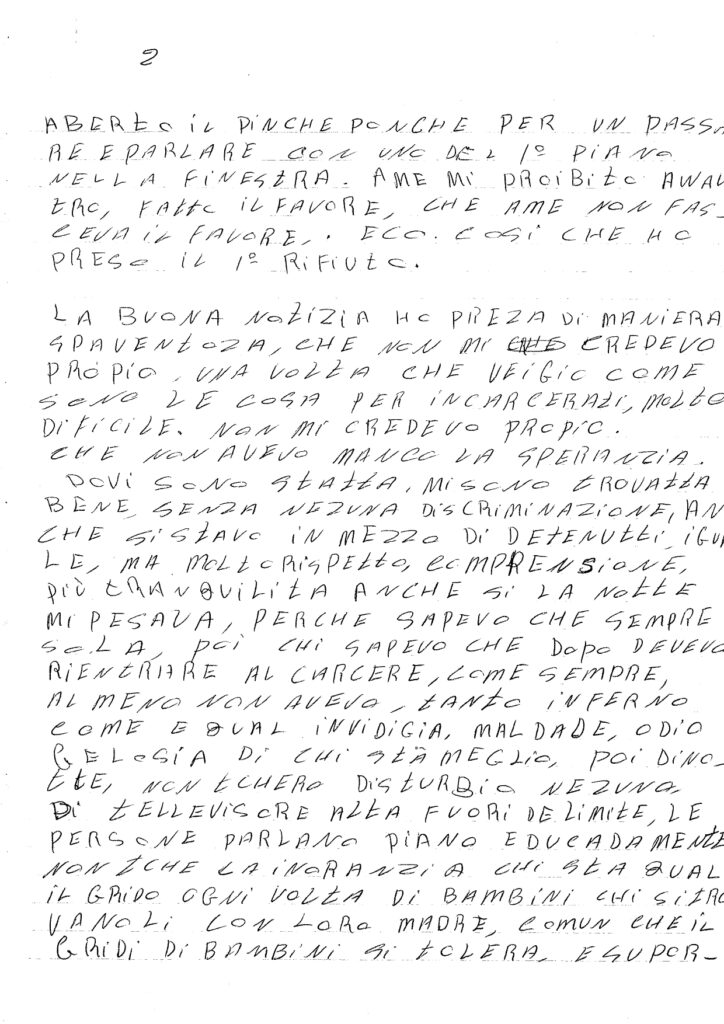 2
ABERTO IL PINCHE PONCHE PER UN PASSA
RE E PARLARE CON UNO DEL 1º PIANO
NELLA FINESTRA. AME MI PROIBITO AWAL
TRO, FATTO IL FAVORE, CHE AME NON FAS-
CEVA IL FAVORE,. ECO. COSÌ CHE HO
PRESO IL 1º RIFIUTO.
LA BUONA NOTIZIA HO PREZA DI MANIERA
SPAVENTOZA, CHE NON MI CREDEVO
PROPIO. UNA VOLTA CHE VEIGIO COME
SONO LE COSA PER INCARCERATI, MOLTO
DIFICILE. NON MI CREDEVO PROPIO.
CHE NON AVEVO MANCO LA SPERANZIA.
DOVI SONO STATTA, MI SONO TROVATTA
BENE, SENZA NEZUNA DISCRIMINAZIONE, AN
CHE SI STAVO IN MEZZO DI DETENUTTI, IGUA
LE, MA MOLTO RISPETTO, COMPRENSIONE,
PIÙ TRANQUILITA ANCHE SI LA NOTTE
MI PESAVA, PERCHE SAPEVO CHE SEMPRE
SOLA, POI CHI SAPEVO CHE DOPO DEVEVO
RIENTRIARE AL CARCERE, COME SEMPRE,
AL MENO NON AVEVO, TANTO INFERNO
COME E QUAL INVIDIGIA, MALDADE, ODIO
GELOSÍA DI CHI STÀ MEGLIO, POI DINO-
TTE, NON TCHERO DISTURBIO NEZUNO.
DI TELLEVISORE ALTA FUORI DE LIMITE, LE
PERSONE PARLANO PIANO EDUCADAMENTE
NON TCHE LA INORANZIA CHI STA QUAL
IL GRIDO OGNI VOLTA DI BAMBINI CHI SI TRO
VANO LI CON LORO MADRE, COMUN CHE IL
GRIDI DI BAMBINI SI TOLERA, E SUPOR-